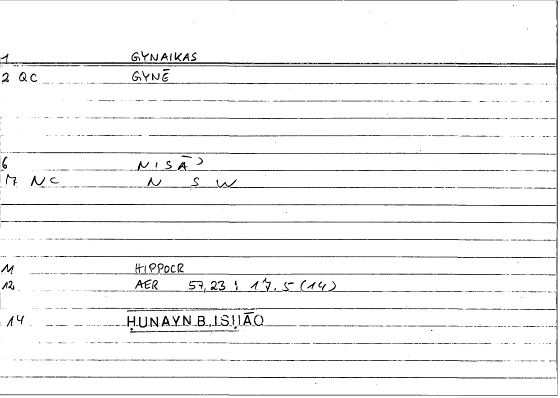 1 GYNAIKAS
2 QC GYNĒ
6 NISĀʾ
7 NC N S W
11 HIPPOCR
12 AER 57,23 : 17,5 (14)
14 ḤUNAYN B. ISḤĀQ